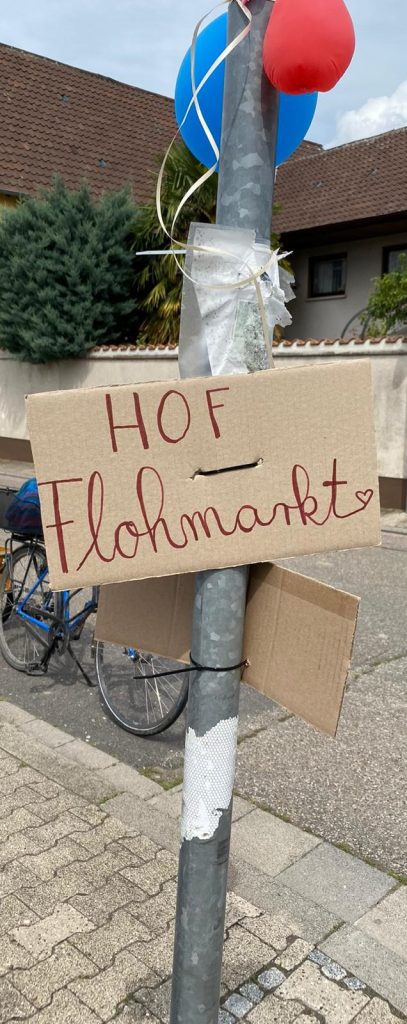 HOF
Flohmarkt